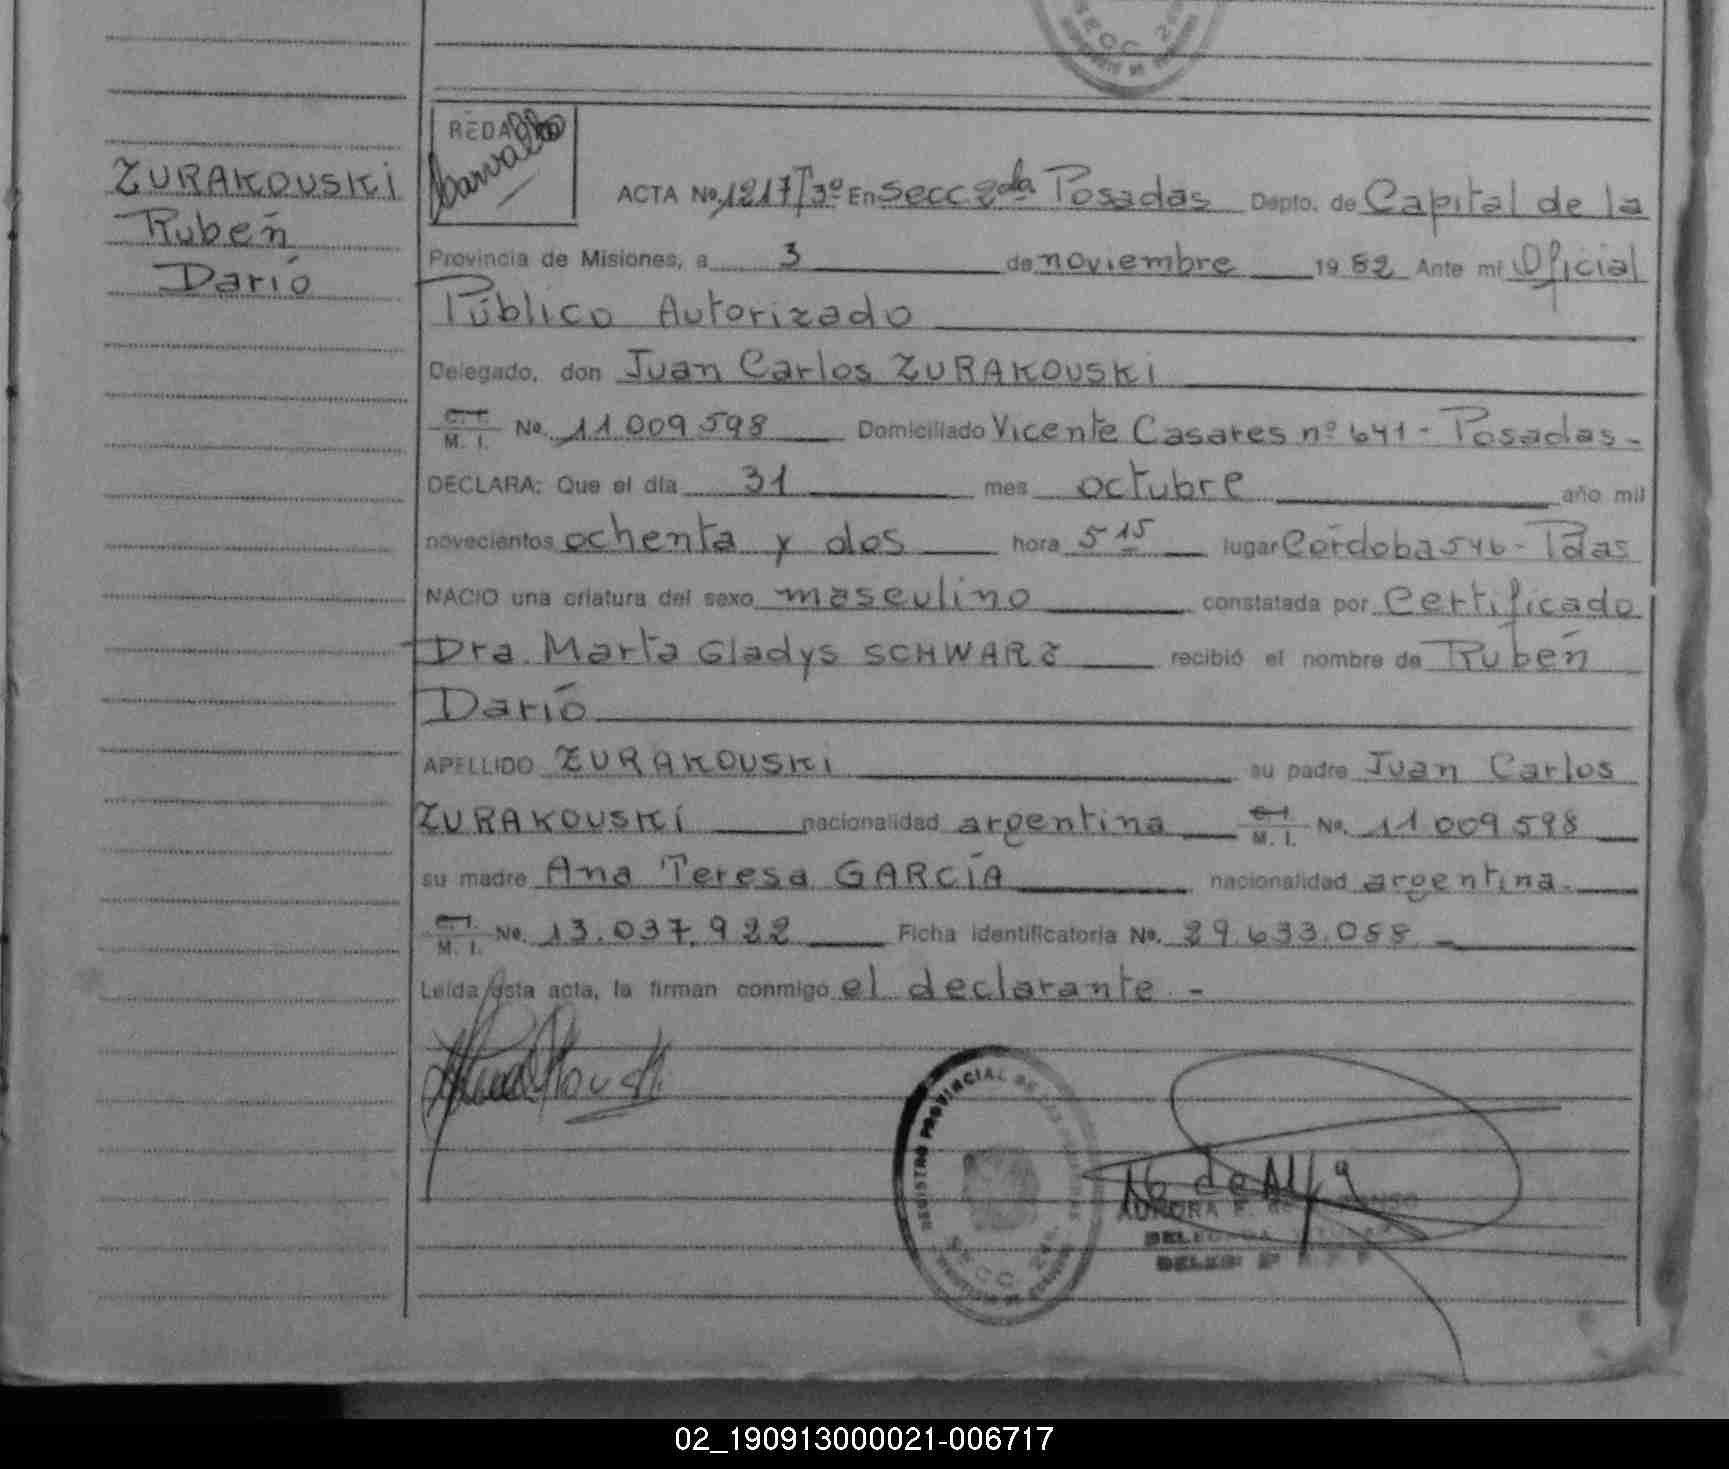 SECC. 2
ZURAKOUSKi
Rubén
Darió
REDA
Carvalho
ACTA No. 1217/Tº3º En Secc 2da Posadas Depto. de Capital de la
Provincia de Misiones, a 3 de noviembre 1982 Ante mi Oficial
Público Autorizado
Delegado, don Juan Carlos ZURAKOUSKi
C. I. M. I. No. 11.009.598 Domiciliado Vicente Casares nº 641 - Posadas -
DECLARA: Que el día 31 mes octubre año mil
novecientos ochenta y dos hora 5 15 lugar Córdoba 546 - Pdas
NACIO una criatura del sexo masculino constatada por Certificado
Dra. Marta Gladys SCHWARZ recibió el nombre de Rubén
Darió
APELLIDO ZURAKOUSKi su padre Juan Carlos
ZURAKOUSKi nacionalidad argentina C. I. M. I. No. 11.009.598
su madre Ana Teresa GARCÍA nacionalidad argentina.
C. I. M. I. No. 13.037.922 Ficha identificatoria No. 29.633.058
Leída esta acta, la firman conmigo el declarante -
REGISTRO PROVINCIAL DE LAS
SECC. 2
AURORA F. DE
DELEGADA
02_190913000021-006717